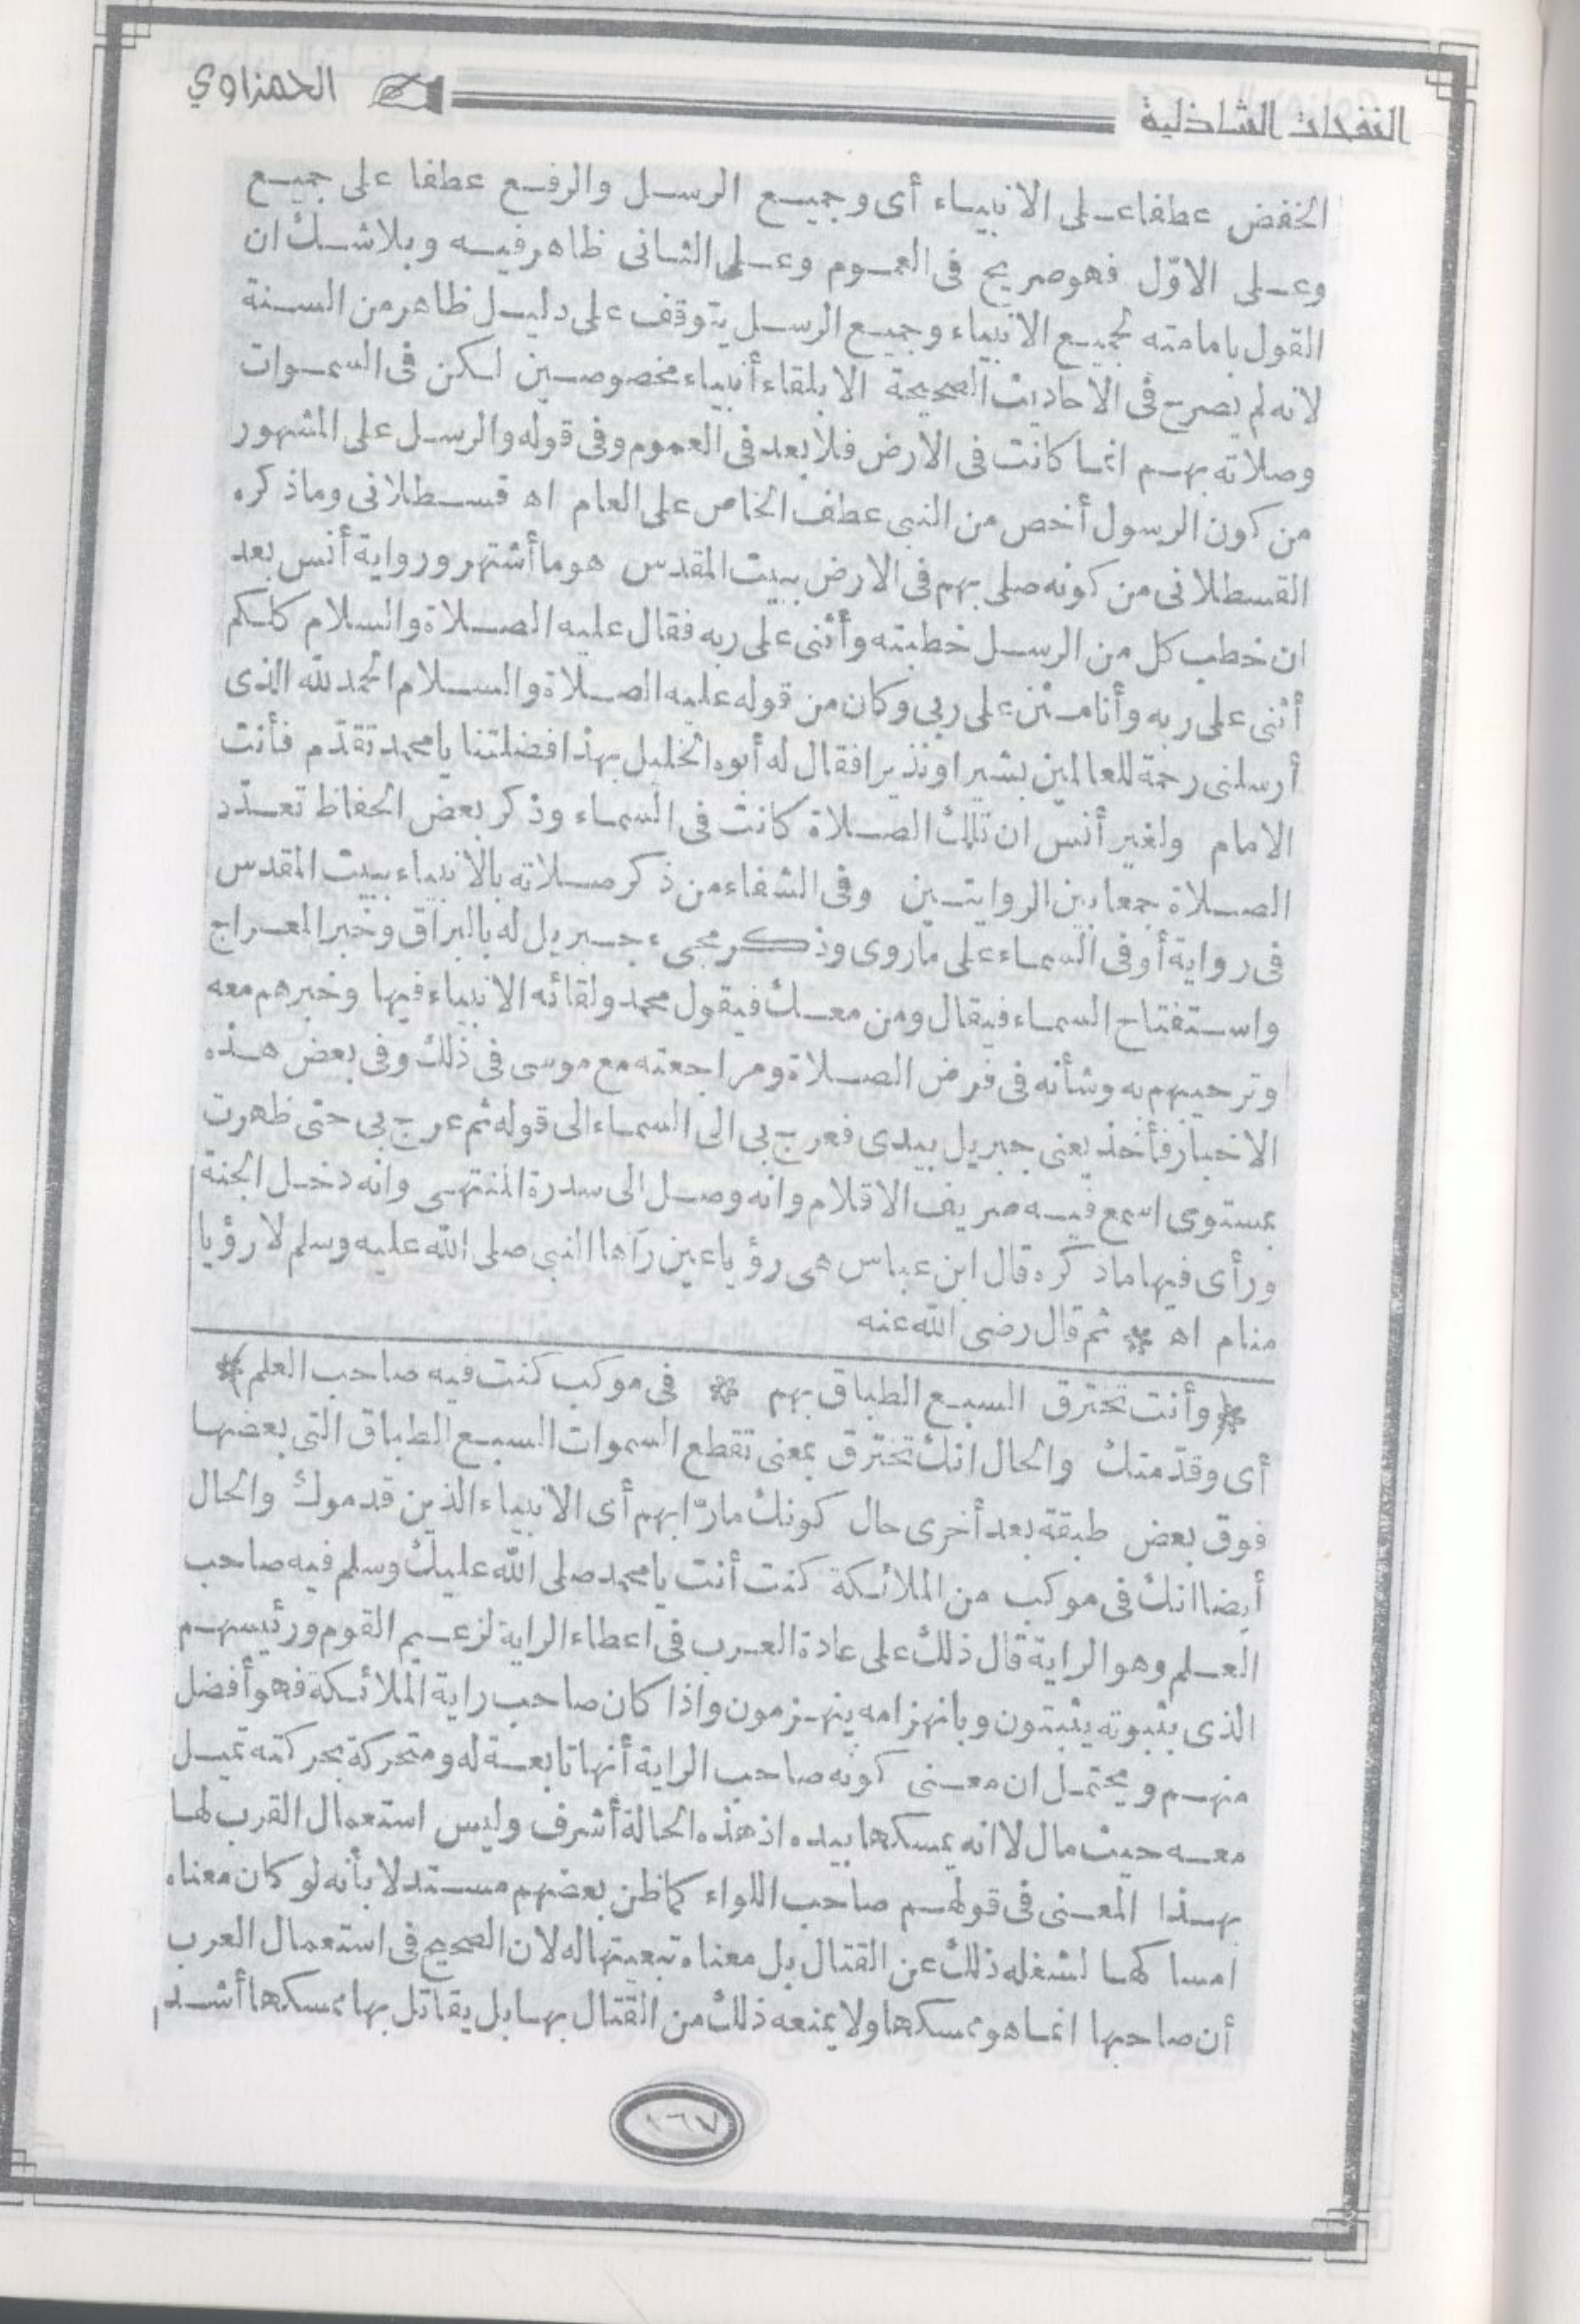 النفحات الشاذلية
الحمزاوي
الخفض عطفا على الانبياء أى وجميع الرسل والرفع عطفا على جميع
وعلى الاوّل فهو صريح فى العموم وعلى الثانى ظاهر فيه وبلاشك ان
القول بامامته لجميع الانبياء وجميع الرسل يتوقف على دليل ظاهر من السنة
لانه لم يصرح فى الاحاديث الصحيحة الا بلقاء أنبياء مخصوصين لكن فى السموات
وصلاته بهم انما كانت فى الارض فلا بعد فى العموم وفى قوله والرسل على المشهور
من كون الرسول أخص من النبى عطف الخاص على العام اه قسطلانى وماذكره
القسطلانى من كونه صلى بهم فى الارض ببيت المقدس هو ما أشتهر ورواية أنس بعد
ان خطب كل من الرسل خطبته وأثنى على ربه فقال عليه الصلاة والسلام كلكم
أثنى على ربه وأنا مثن على ربى وكان من قوله عليه الصلاة والسلام الحمد لله الذى
أرسلنى رحمة للعالمين بشيرا ونذيرا فقال له أبوه الخليل بهذا فضلتنا يا محمد تقدّم فأنت
الامام ولغير أنس ان تلك الصلاة كانت فى السماء وذكر بعض الحفاظ تعدّد
الصلاة جمعا بين الروايتين وفى الشفاء من ذكر صلاته بالانبياء ببيت المقدس
فى رواية أو فى السماء على ماروى وذكر مجىء جبريل له بالبراق وخبر المعراج
واستفتاح السماء فيقال ومن معك فيقول محمد ولقائه الانبياء فيها وخبرهم معه
وترحيبهم به وشأنه فى فرض الصلاة ومراجعته مع موسى فى ذلك وفى بعض هذه
الاخبار فأخذ يعنى جبريل بيدى فعرج بى الى السماء الى قوله ثم عرج بى حتى ظهرت
بمستوى اسمع فيه صريف الاقلام وانه وصل الى سدرة المنتهى وانه دخل الجنة
ورأى فيها ماذكره قال ابن عباس هى رؤيا عين رآها النبى صلى الله عليه وسلم لا رؤيا
منام اه * ثم قال رضى الله عنه
* وأنت تخترق السبع الطباق بهم * فى موكب كنت فيه صاحب العلم *
أى وقدّمتك والحال انك تخترق بمعنى تقطع السموات السبع الطباق التى بعضها
فوق بعض طبقة بعد أخرى حال كونك مارّا بهم أى الانبياء الذين قدموك والحال
أيضا انك فى موكب من الملائكة كنت أنت يا محمد صلى الله عليك وسلم فيه صاحب
العلم وهو الراية قال ذلك على عادة العرب فى اعطاء الراية لزعيم القوم ورئيسهم
الذى بثبوته يثبتون وبانهزامه ينهزمون واذا كان صاحب راية الملائكة فهو أفضل
منهم ويحتمل ان معنى كونه صاحب الراية أنها تابعة له ومتحركة بحركته تميل
معه حيث مال لا انه يمسكها بيده اذ هذه الحالة أشرف وليس استعمال القرب لها
بهذا المعنى فى قولهم صاحب اللواء كما ظن بعضهم مستدلا بأنه لو كان معناه
امساكها لشغله ذلك عن القتال بل معناه تبعيتها له لان الصحيح فى استعمال العرب
أن صاحبها انما هو ممسكها ولا يمنعه ذلك من القتال بها بل يقاتل بها ممسكها أشد
١٦٧